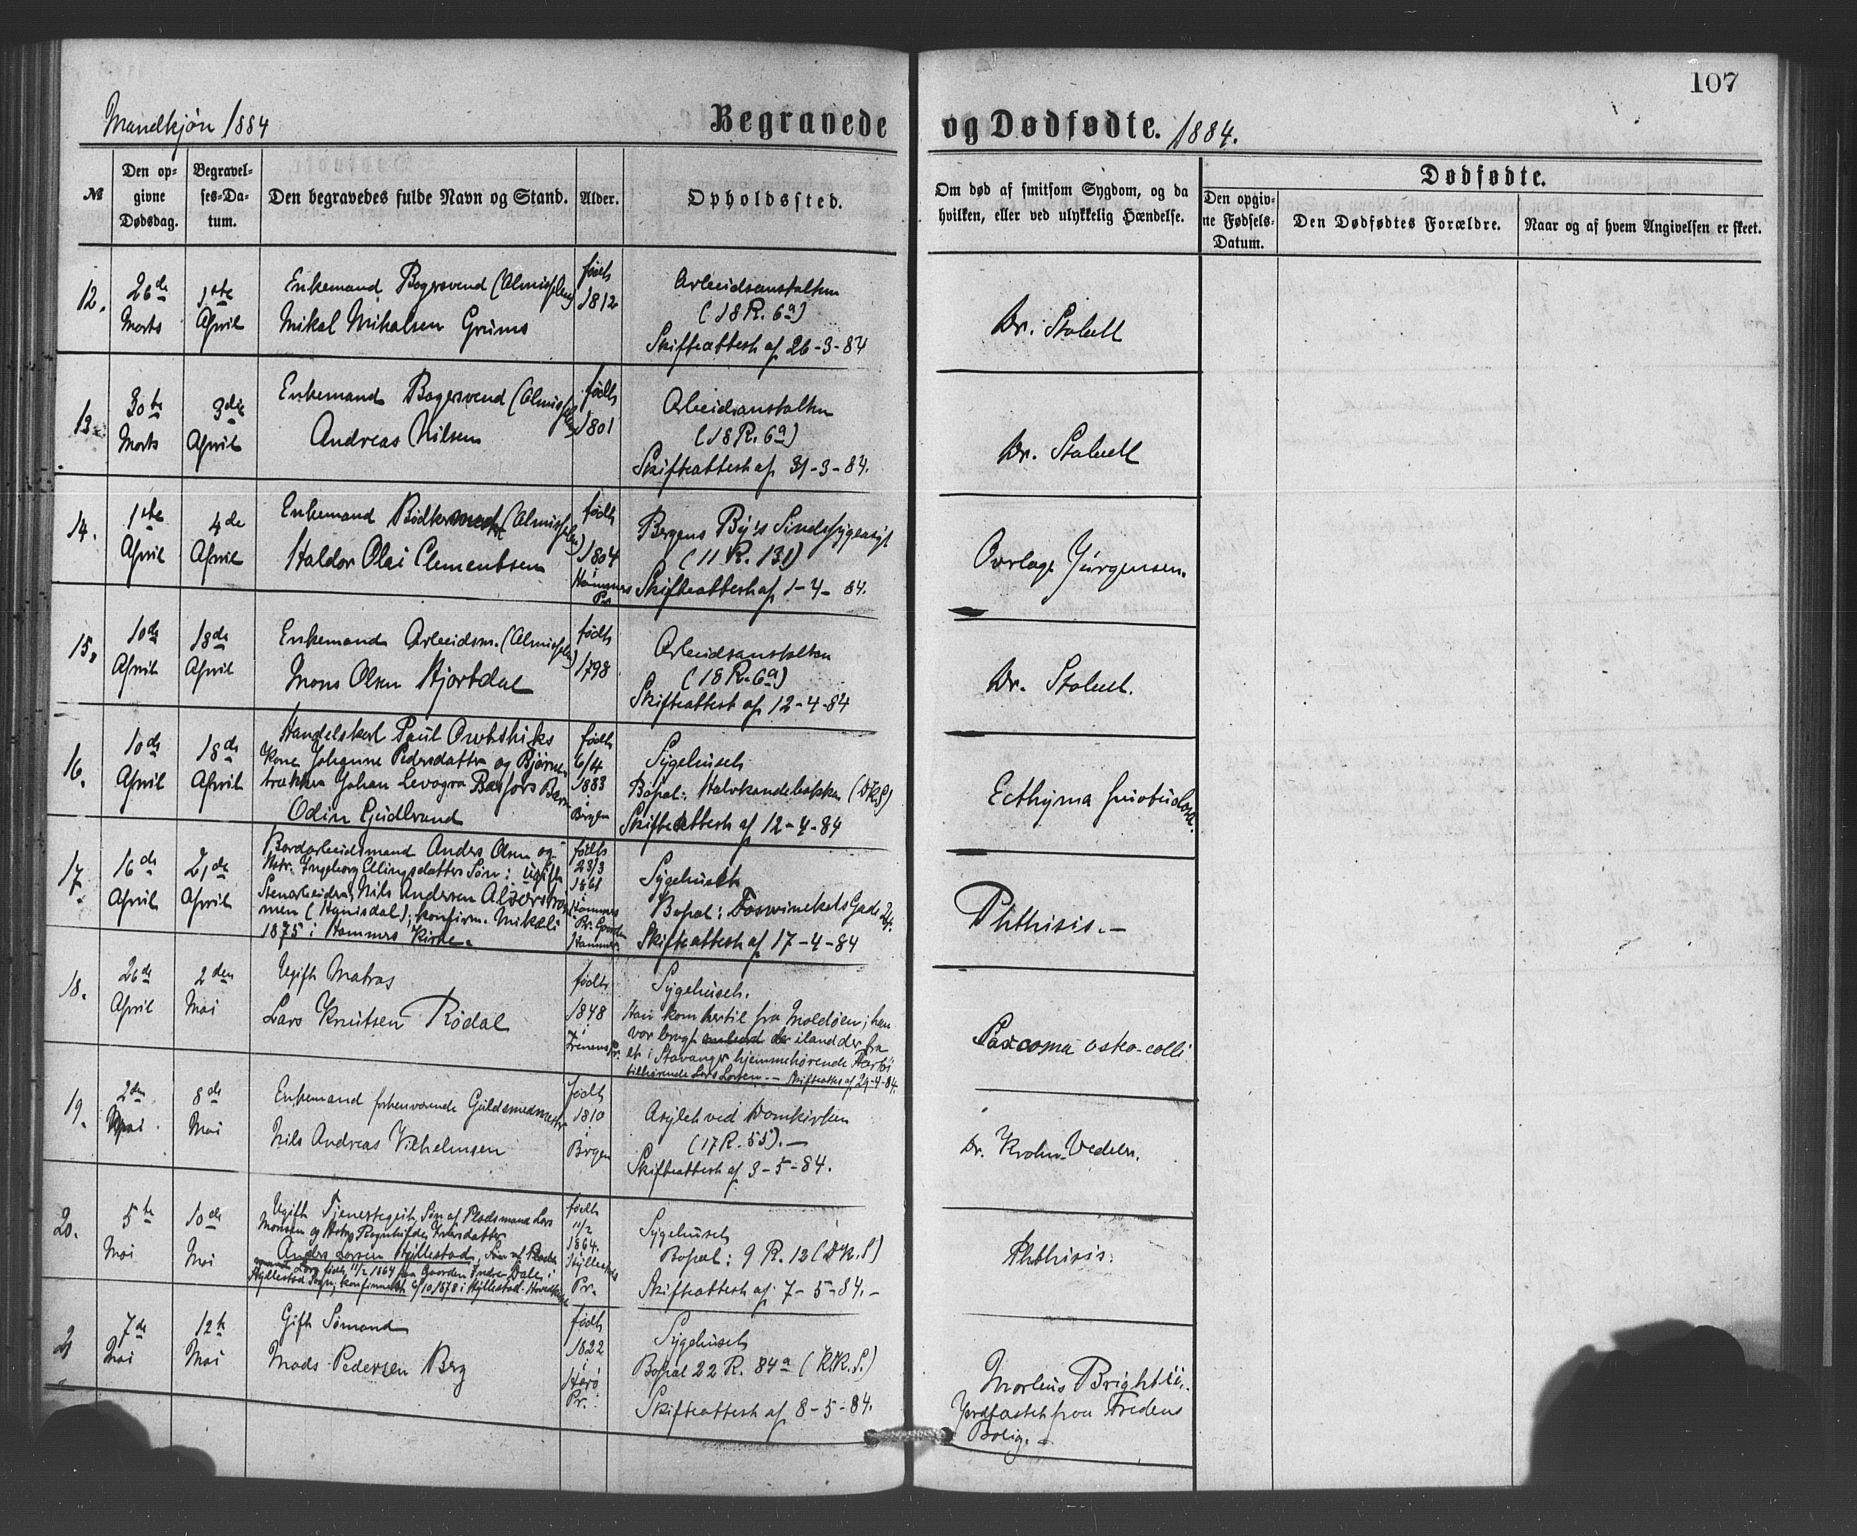 107
Mandkjøn 1884
Begravede og Dødfødte. 1884.
№
Den op-
givne
Dødsdag.
Begravel-
ses-Da-
tum.
Den begravedes fulde Navn og Stand.
Alder.
Opholdssted.
Om død af smitsom Sygdom, og da
hvilken, eller ved ulykkelig Hændelse.
Dødfødte.
Den opgiv-
ne Fødsels-
Datum.
Den Dødfødtes Forældre.
Naar og af hvem Angivelsen er skeet.
12.
26de
Marts
1ste
April
Enkemand Bagersvend (Almisselem)
Mikal Mikalsen Grims
født
1812
Arbeidsanstalten
(18 R. 6a)
Skifteattest af 26-3-84
Dr. Stabell
13.
30te
Marts
3die
April
Enkemand Bagersvend (Almisselem)
Andreas Nilsen
født
1801
Arbeidsanstalten
(18 R. 6a)
Skifteattest af 31-3-84.
Dr. Stabell
14.
1ste
April
4de
April
Enkemand Bødkermester (Almisselem)
Haldor Olai Clementsen
født
1804
Hammers
Pr.
Bergens By's Sindssygeasyl
(11 R. 131)
Skifteattest af 1-4-84.
Overlæge Jürgensen.
15.
10de
April
18de
April
Enkemand Arbeidsm. (Almisselem)
Mons Olsen Hjortdal
født
1798
Arbeidsanstalten
(18 R. 6a)
Skifteattest af 12-4-84
Dr. Stabell.
16.
10de
April
18de
April
Handelskarl Paul
Kone Johanne Pedersdatter og Bjørne-
trækker Johan Barn
Odin Gudbrand
født
6/4
1883
i
Bergen
Sygehuset
Bopæl: Halvkandebakken (DKS)
Skifteattest af 12-4-84
Ecthyma
17.
16de
April
21de
April
Bordarbeidsmand Anders Olsen og
Hstr. Ingeborg Ellingsdatters Søn: Ugift
Stenarbeider Nils Andersen
men (Hanisdal); konfirm. Mikæli
1875 i Hammers Kirke.
født
23/3
1861
i
Hammers
Pr. Gaarden
Hammer.
Sygehuset
Bopæl: Gade 24.
Skifteattest af 17-4-84
Phthisis.-
18.
26de
April
2den
Mai
Ugift Matros
Lars Knutsen Rødal
født
1848
i
Pr.
Sygehuset.
Han kom hertil fra Moldøen; han
var bragt iland der fra
et i Stavanger hjemmehørende Fartøi
tilhørende Lars Larsen.- Skifteattest af 29-4-84.
Sarcoma osteo-colli
19.
2den
Mai.
8de
Mai
Enkemand forhenværende Guldsmedmester
Nils Andreas Vilhelmsen
født
1810
i
Bergen
Asylet ved Domkirken
(17 R. 55).-
Skifteattest af 3-5-84.
Dr. Krohn-Vedeler.
20.
5te
Mai
10de
Mai
Ugift Tjenestegut, Søn af Pladsmand Lars
Monsen og Hstr. Ragnhilde Iversdatter
Anders Larsen Hyllestad, Søn af Plads-
mand Lars født 11/2 1864 paa Gaarden Indre Dale i
Hyllestad Sogn, konfirmeret 6/10 1878 i Hyllestad Hovedkirke
født
11/2
1864.
Hyllestads
Pr.
Sygehuset
Bopæl: 9 R. 12 (DK.S)
Skifteattest af 7-5-84.-
Phthisis.
21
7de
Mai
12te
Mai
Gift Sømand
Mads Pedersen Berg
født
1822
i
Herø
Pr.
Sygehuset
Bopæl 22 R. 84a (K.K.S.)
Skifteattest af 8-5-84.
Morbus Brightii.
Jordfæstet fra Fredens
Bolig.-